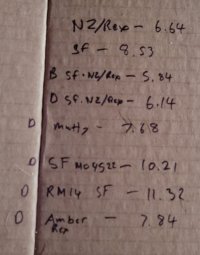 NZ/Rex - 6.64
SF - 8.53
B SF.NZ/Rex - 5.84
D SF.NZ/Rex - 6.14
D Mutt, - 7.68
D SF - 10.21
D RM14 SF - 11.32
D Amber Rex - 7.84